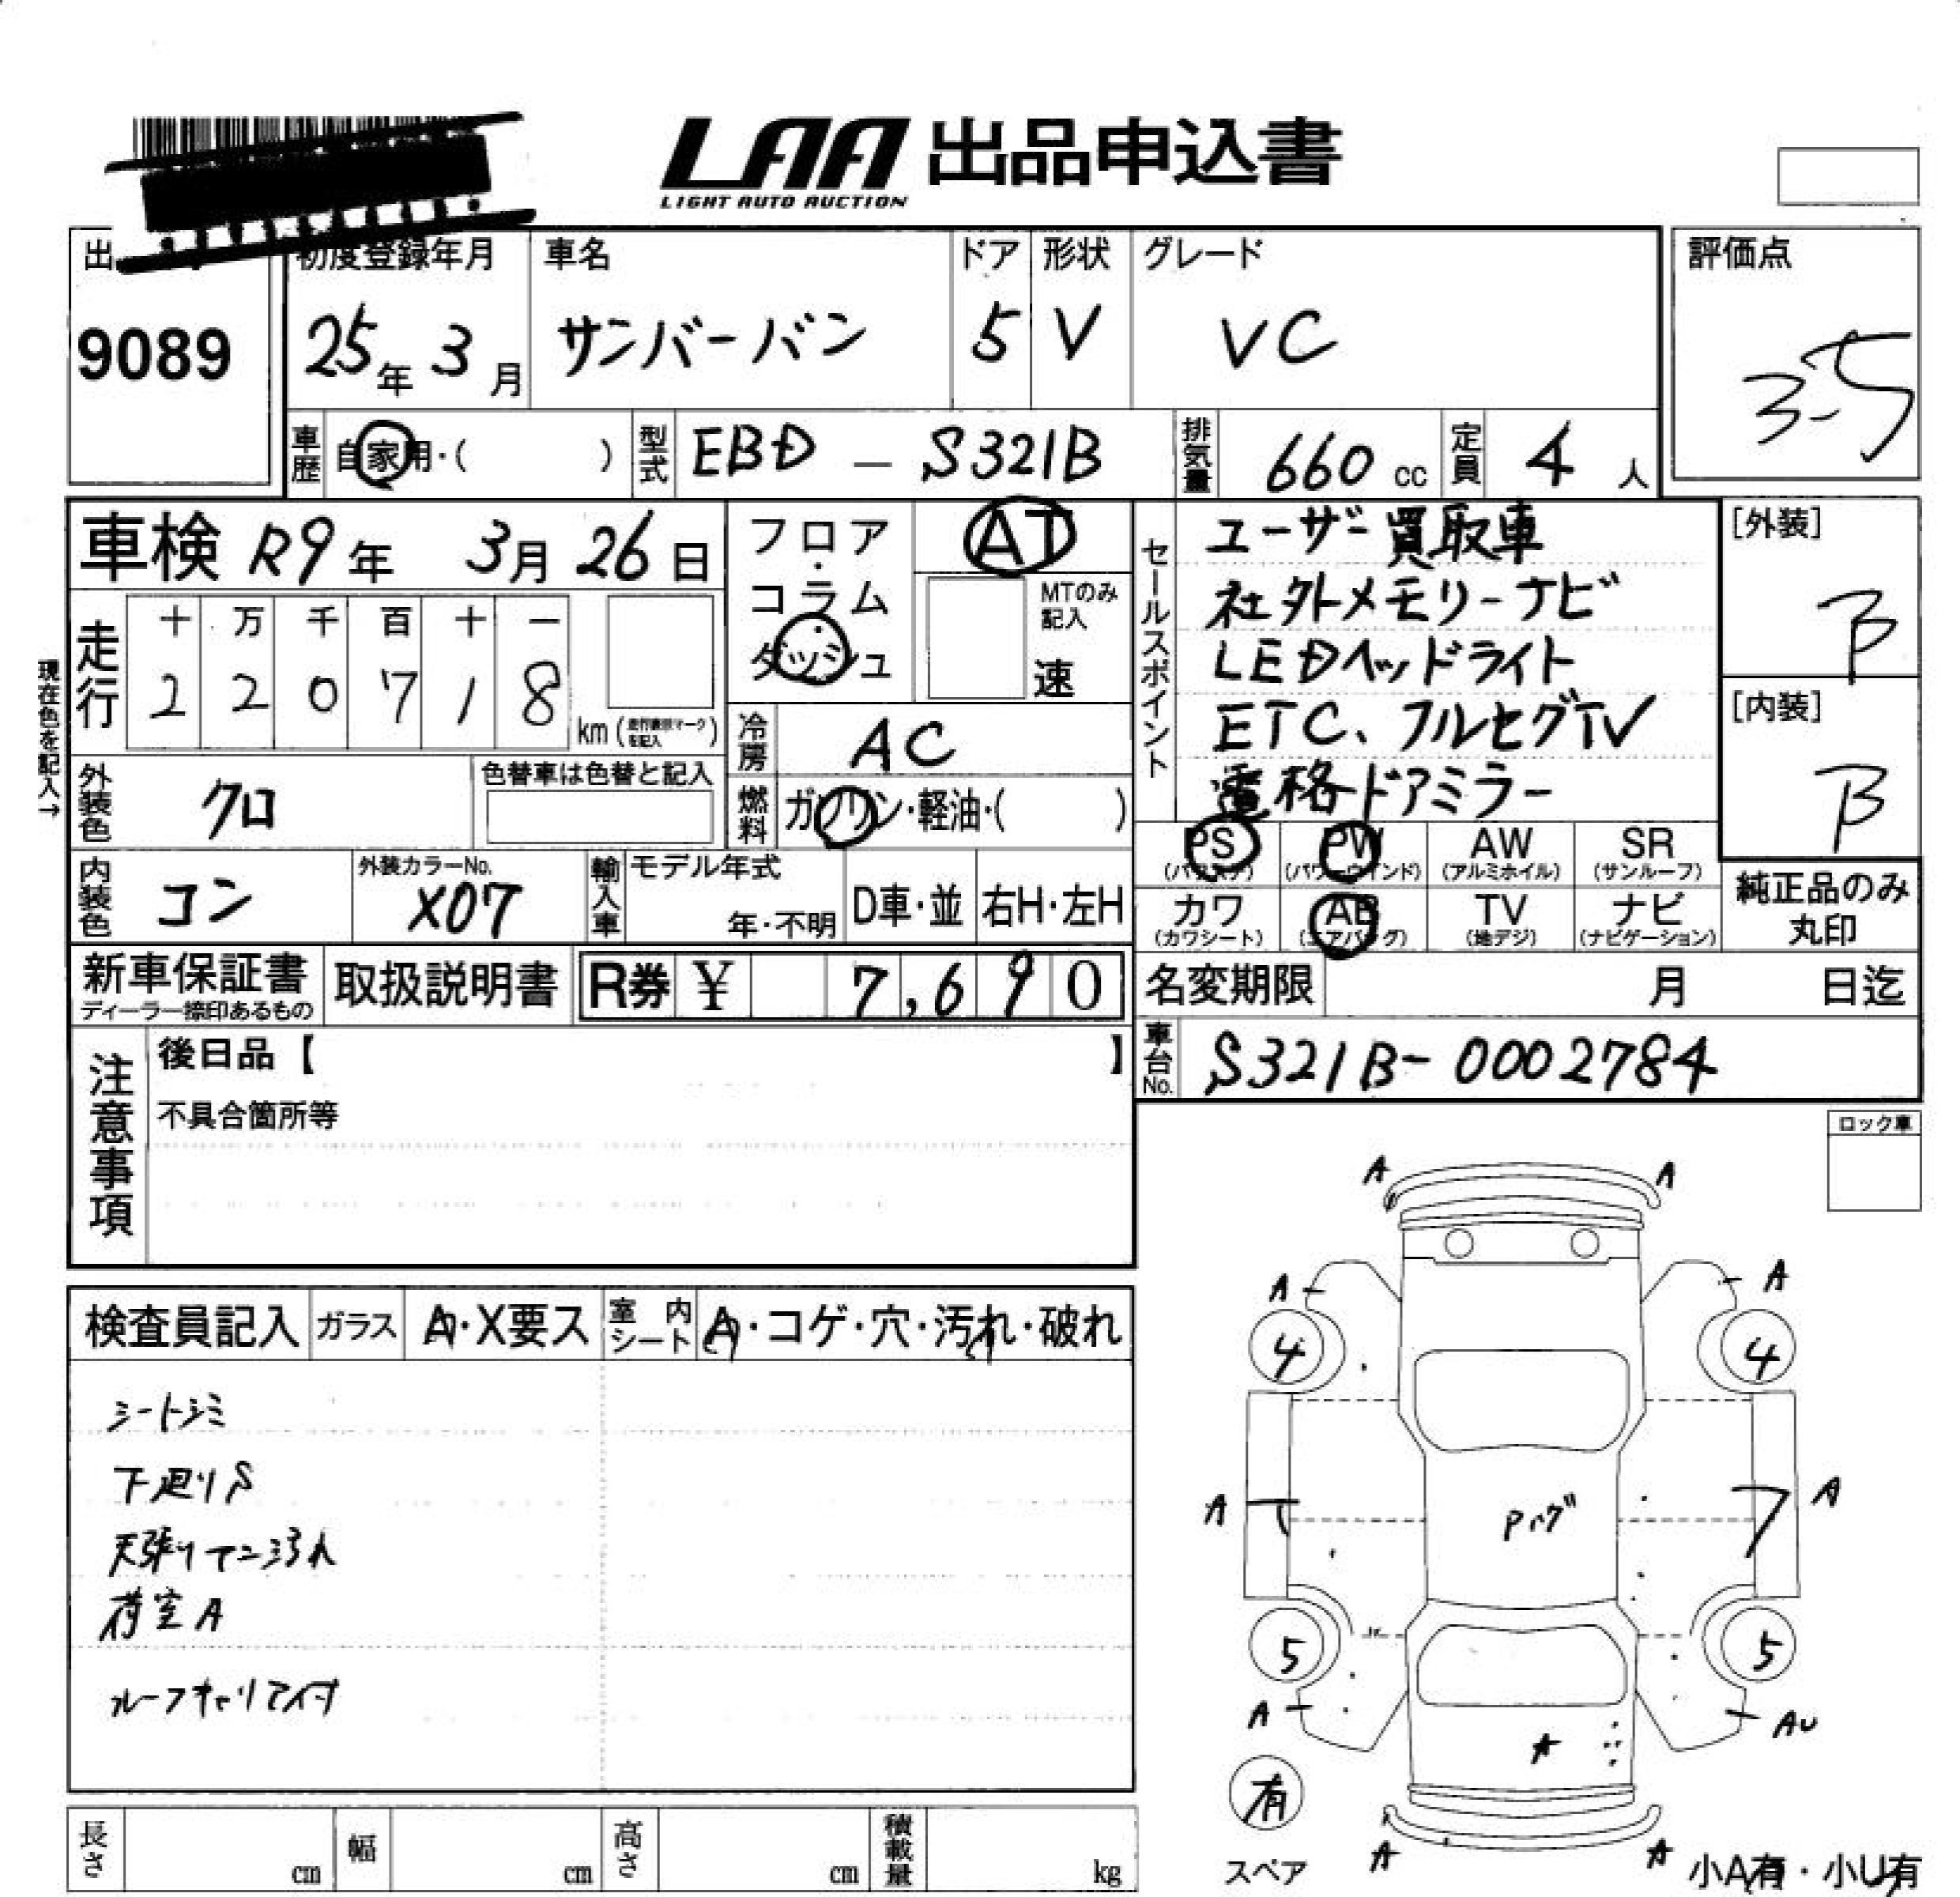 LAA 出品申込書
LIGHT AUTO AUCTION
出
初度登録年月
車名
ドア
形状
グレード
評価点
9089
25年3月
サンバーバン
5
V
VC
3.5
車歴
自家用・( )
型式
EBD － S321B
排気量
660 cc
定員
4 人
車検 R9年 3月 26日
フロア・コラム・ダッシュ
AT
MTのみ記入
速
セールスポイント
ユーザー買取車
社外メモリーナビ
LEDヘッドライト
ETC、フルセグTV
電格ドアミラー
[外装]
B
[内装]
B
現在色を記入→
走行
十 万 千 百 十 一
2 2 0 7 1 8
km
冷房
AC
外装色
クロ
色替車は色替と記入
燃料
ガソリン・軽油・( )
PS
PW
AW
SR
(パワステ)
(パワーウインド)
(アルミホイル)
(サンルーフ)
カワ
AB
TV
ナビ
(カワシート)
(エアバッグ)
(地デジ)
(ナビゲーション)
純正品のみ
丸印
内装色
コン
外装カラーNo.
X07
輸入車
モデル年式
年・不明
D車・並
右H・左H
新車保証書
ディーラー捺印あるもの
取扱説明書
R券 ¥ 7,690
名変期限 月 日迄
注意事項
後日品【 】
不具合箇所等
車台No.
S321B-0002784
ロック車
検査員記入
ガラス
A・X要ス
室内シート
A・コゲ・穴・汚れ・破れ
シートシミ
下廻りS
天張り テン汚れ
荷室A
ルーフキャリア付
A
A
A
A
4
4
A
A
5
5
A
AU
A
有
スペア
A
A
小A有・小U有
長さ cm
幅 cm
高さ cm
積載量 kg